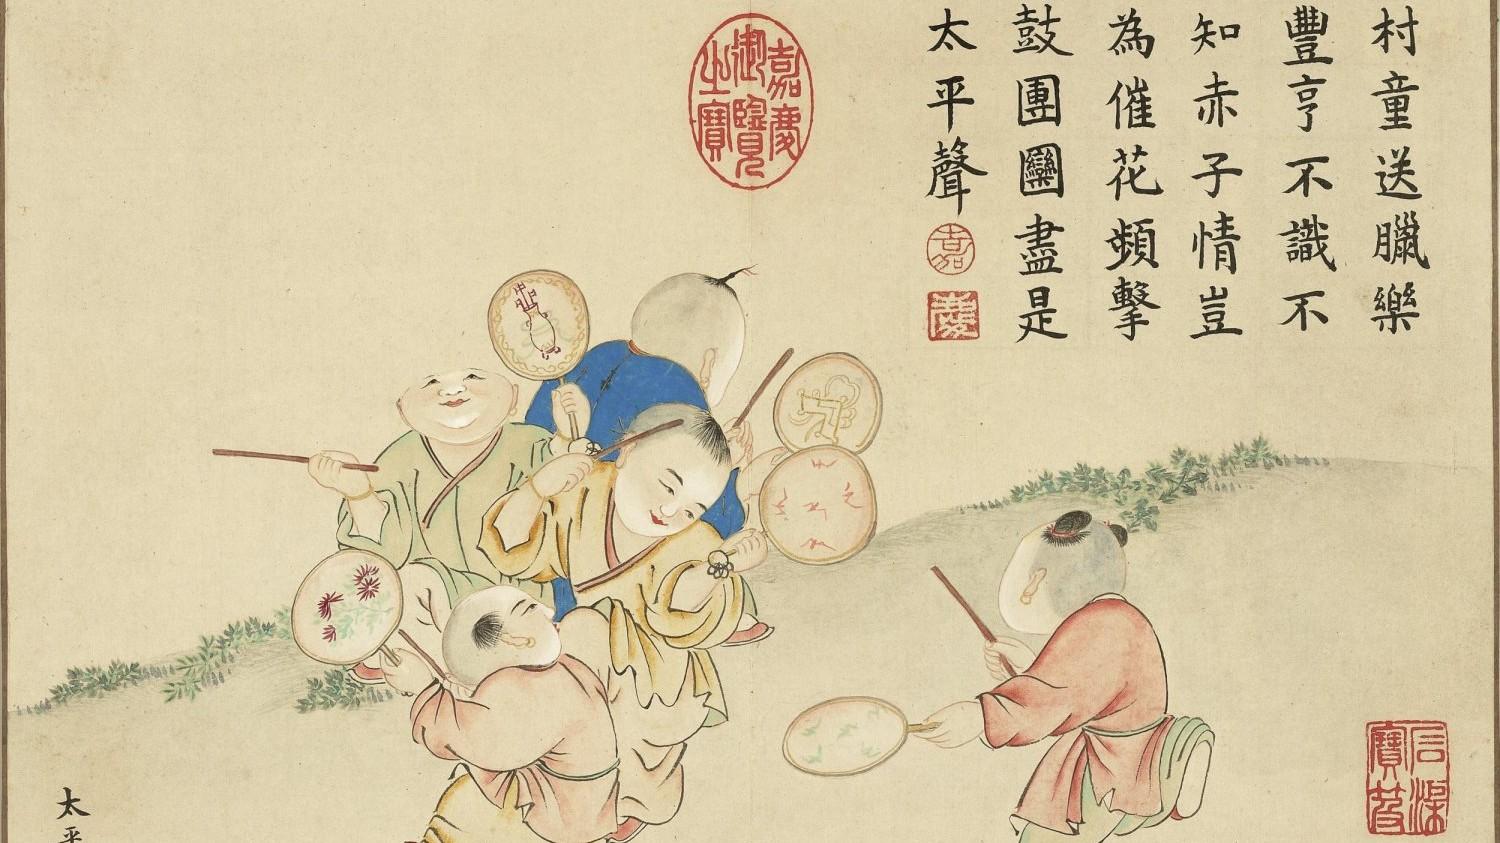 村童送臘樂
豐亨不識不
知赤子情豈
為催花頻擊
鼓團圞盡是
太平聲
嘉
慶
嘉慶
御覽
之寶
太平